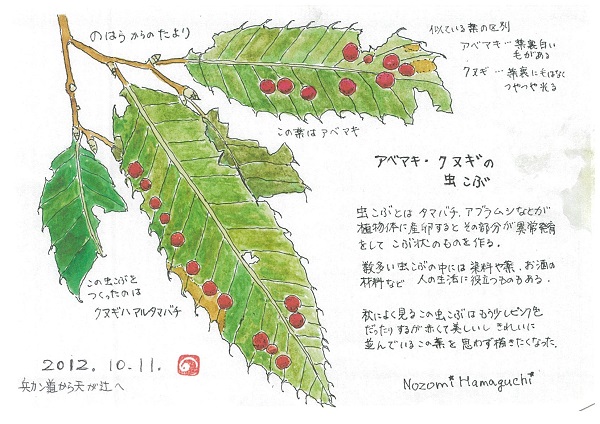 のはらからのたより
似ている葉の区別
アベマキ…葉裏白い
毛がある
クヌギ…葉裏に毛はなく
つやつや光る
この葉はアベマキ
アベマキ・クヌギの
虫こぶ
虫こぶとは タマバチ、アブラムシなどが
植物体に産卵すると その部分が異常発育
をして こぶ状のものを作る.
数多い虫こぶの中には 染料や薬、お酒の
材料など 人の生活に役立つものもある.
秋によく見るこの虫こぶは もう少しピンク色
だったりするが 赤くて美しいし きれいに
並んでいるこの葉を 思わず描きたくなった.
この虫こぶを
つくったのは
クヌギハアルタマバチ
2012. 10. 11.
兵カン道から天が辻へ
Nozomi Hamaguchi